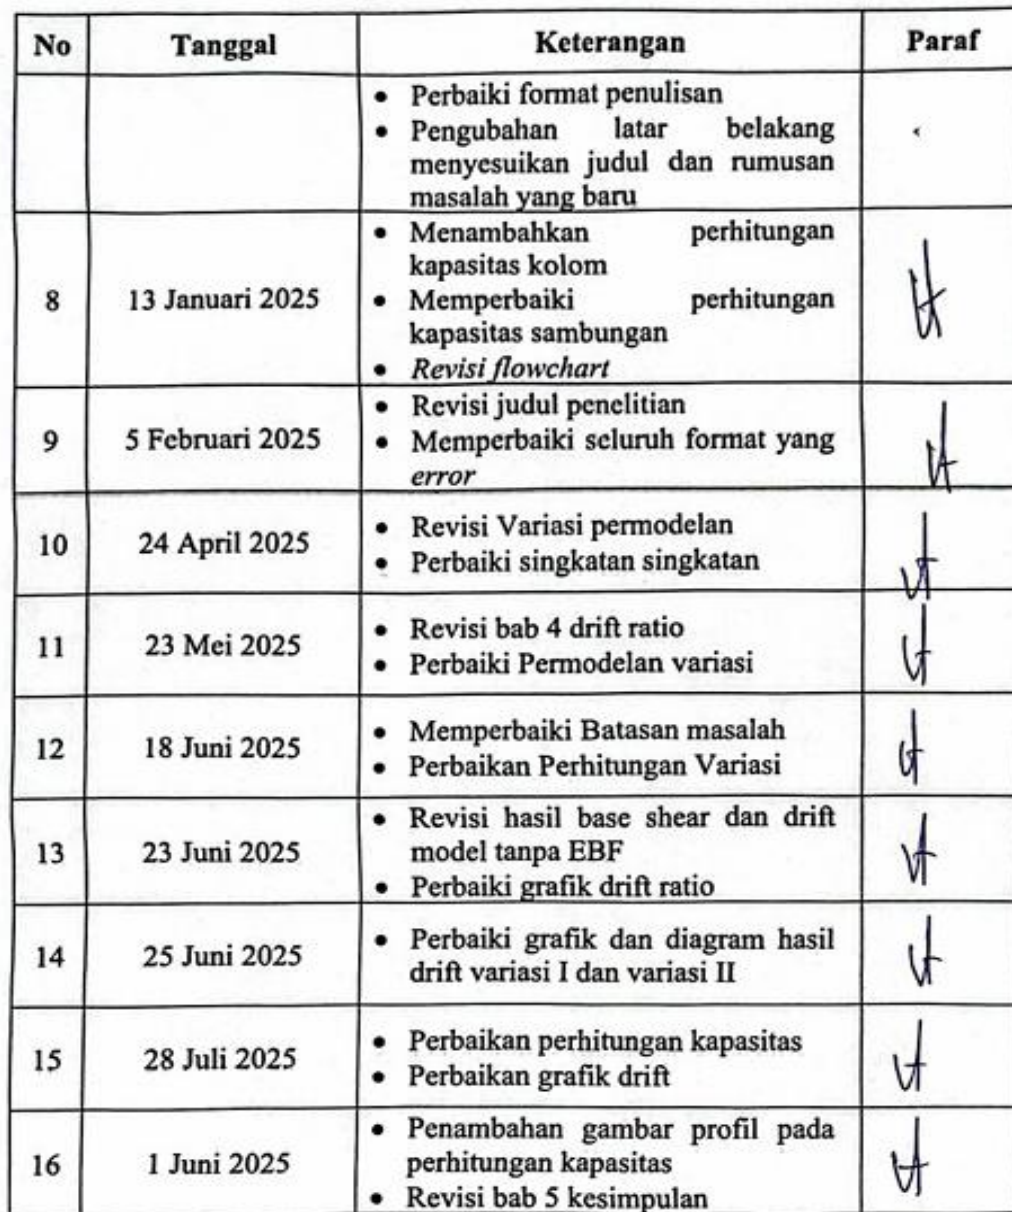 No Tanggal Keterangan Paraf
• Perbaiki format penulisan
• Pengubahan latar belakang
menyesuikan judul dan rumusan
masalah yang baru
• Menambahkan perhitungan
kapasitas kolom
8 13 Januari 2025 • Memperbaiki perhitungan
kapasitas sambungan
• Revisi flowchart
• Revisi judul penelitian
9 5 Februari 2025 • Memperbaiki seluruh format yang
error
10 24 April 2025 • Revisi Variasi permodelan
• Perbaiki singkatan singkatan
11 23 Mei 2025 • Revisi bab 4 drift ratio
• Perbaiki Permodelan variasi
12 18 Juni 2025 • Memperbaiki Batasan masalah
• Perbaikan Perhitungan Variasi
• Revisi hasil base shear dan drift
13 23 Juni 2025 model tanpa EBF
• Perbaiki grafik drift ratio
14 25 Juni 2025 • Perbaiki grafik dan diagram hasil
drift variasi I dan variasi II
15 28 Juli 2025 • Perbaikan perhitungan kapasitas
• Perbaikan grafik drift
• Penambahan gambar profil pada
16 1 Juni 2025 perhitungan kapasitas
• Revisi bab 5 kesimpulan